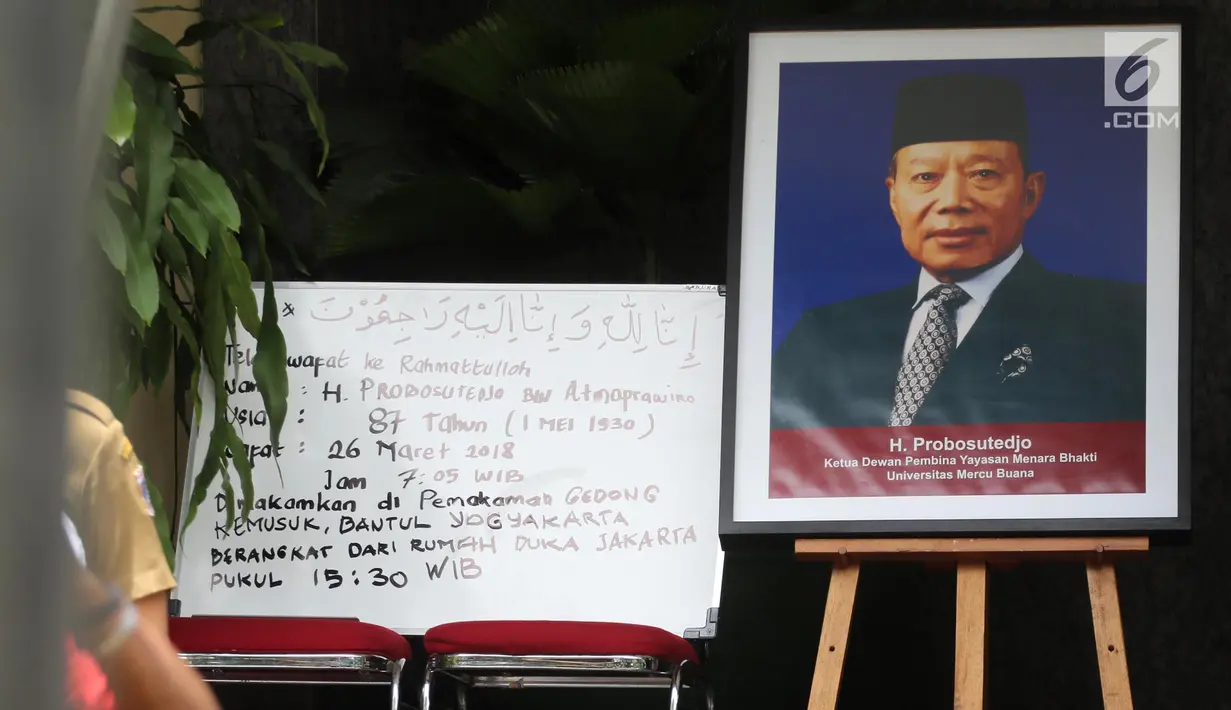 إِنَّا لِلّٰهِ وَإِنَّا إِلَيْهِ رَاجِعُوْنَ
wafat ke Rahmattulloh
: H. PROBOSUTEJO BIN Atmoprawiro
Usia : 87 Tahun (1 MEI 1930)
: 26 Maret 2018
Jam 7:05 WIB
Dimakamkan di Pemakaman GEDONG
KEMUSUK, BANTUL YOGYAKARTA
BERANGKAT DARI RUMAH DUKA JAKARTA
PUKUL 15:30 WIB
6
.COM
H. Probosutedjo
Ketua Dewan Pembina Yayasan Menara Bhakti
Universitas Mercu Buana